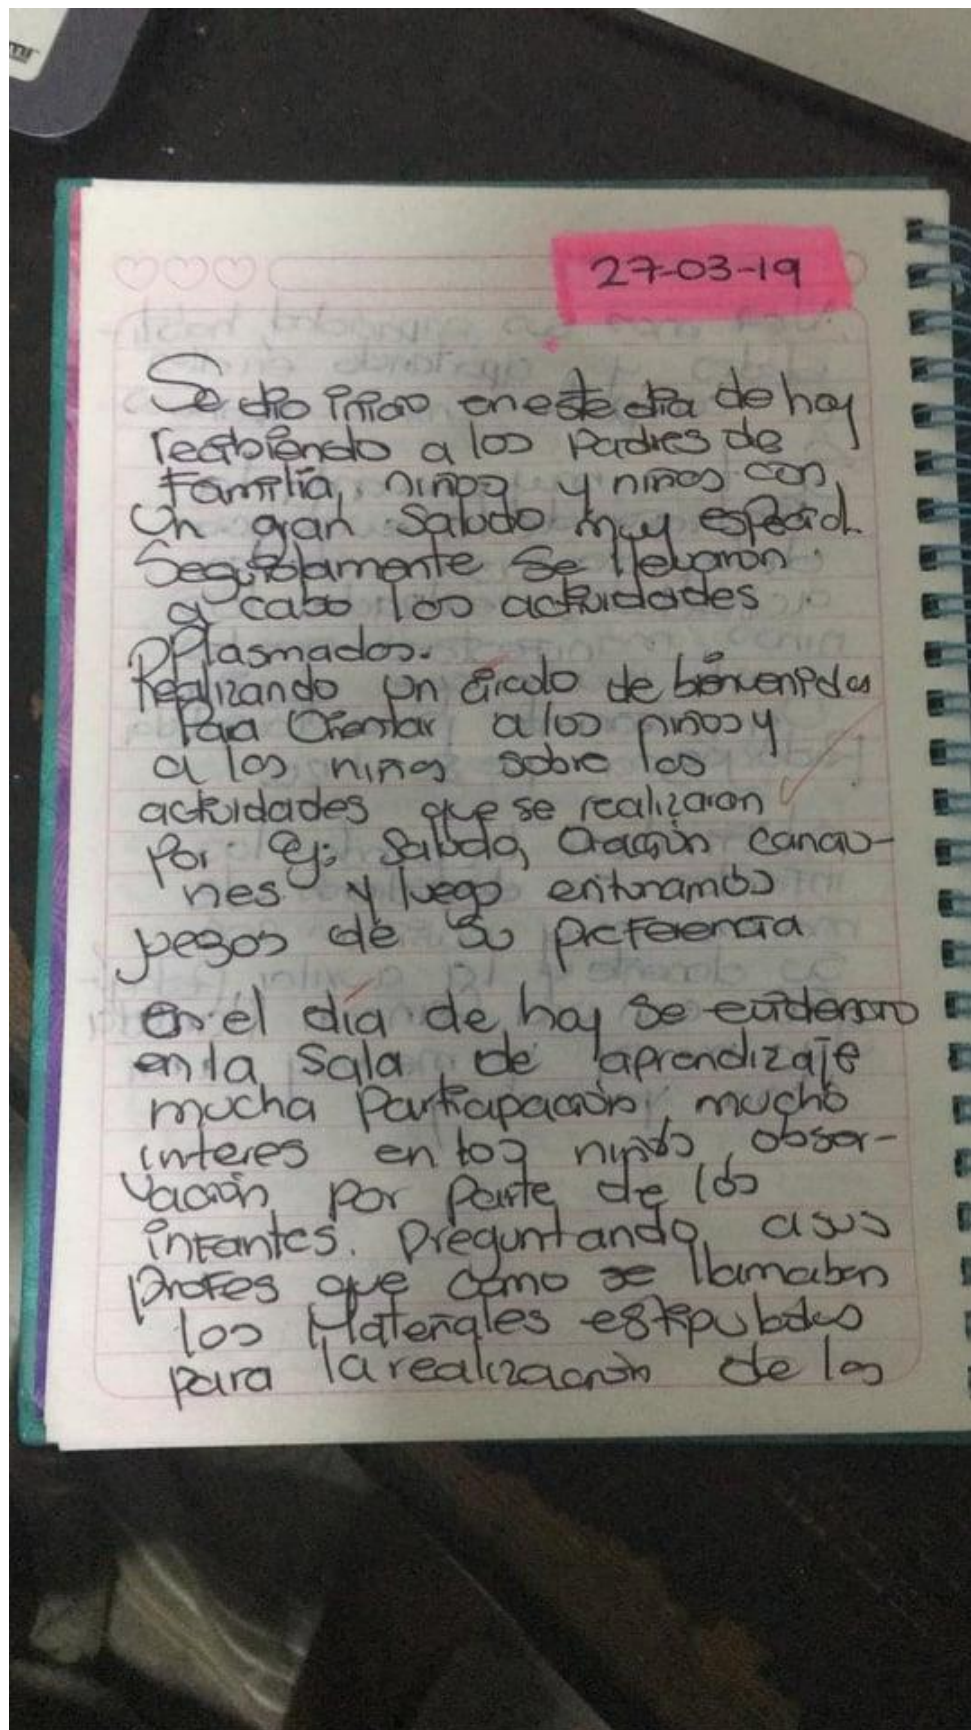 27-03-19
Se dio inicio en este dia de hoy
recibiendo a los Padres de
Familia, niños y niños con
Un gran Saludo muy especial.
Seguidamente Se llevaron
a cabo las actividades
Plasmados.
Realizando un circulo de bienvenidas
Para Orientar a los niños y
a las niñas sobre las
actividades que se realizaron
Por ej: Saludo, Oración cancio-
nes y luego entunamos
juegos de su preferencia
en el día de hoy se evidencio
en la Sala de aprendizaje
mucha Participación, mucho
interes en los niños, obser-
vación por parte de los
infantes. Preguntando a sus
profes que como se llamaban
los Materiales estipulados
para la realización de las